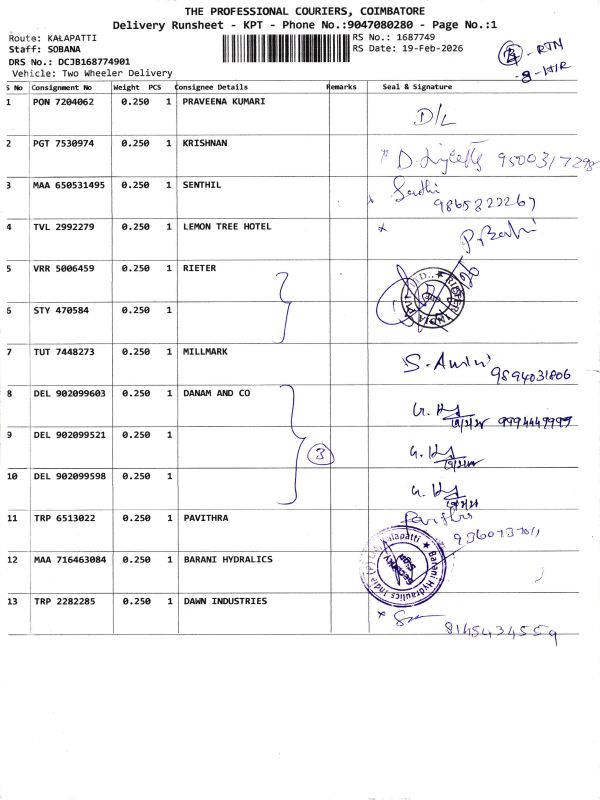 THE PROFESSIONAL COURIERS, COIMBATORE
Delivery Runsheet - KPT - Phone No.:9047080280 - Page No.:1
Route: KALAPATTI
Staff: SOBANA
DRS No.: DCJB168774901
Vehicle: Two Wheeler Delivery
RS No.: 1687749
RS Date: 19-Feb-2026
- RTN
S No Consignment No Weight PCS Consignee Details Remarks Seal & Signature
1 PON 7204062 0.250 1 PRAVEENA KUMARI D/L
2 PGT 7530974 0.250 1 KRISHNAN
3 MAA 650531495 0.250 1 SENTHIL
4 TVL 2992279 0.250 1 LEMON TREE HOTEL
5 VRR 5006459 0.250 1 RIETER
6 STY 470584 0.250 1
7 TUT 7448273 0.250 1 MILLMARK 9894031806
8 DEL 902099603 0.250 1 DANAM AND CO 9994449999
9 DEL 902099521 0.250 1 3
10 DEL 902099598 0.250 1
11 TRP 6513022 0.250 1 PAVITHRA
12 MAA 716463084 0.250 1 BARANI HYDRALICS
Barani Hydraulics India (P) Ltd. Kalapatti
13 TRP 2282285 0.250 1 DAWN INDUSTRIES
8145434559